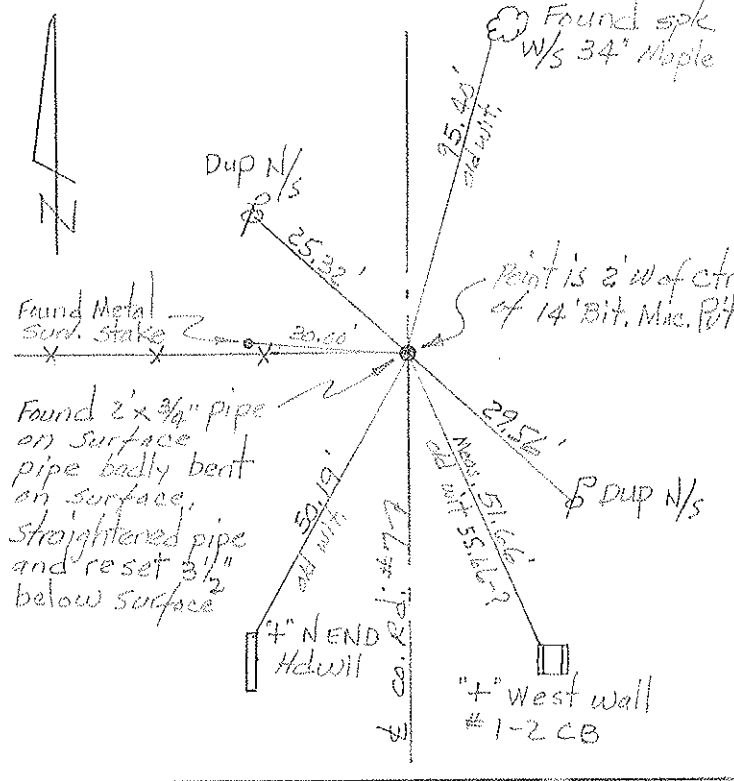 Found spk
W/s 34" Maple
95.40'
old wit.
N
Dup N/s
25.32'
Point is 2' W of Ctr
of 14' Bit. Mac. Pvt
Found Metal
Surv. stake
30.00'
Found 2' x 3/4" pipe
on surface
pipe badly bent
on surface,
straightened pipe
and reset 3 1/2"
below surface
29.56'
Dup N/s
50.19'
old wit.
Meas. 51.66'
old wit 55.66-?
"+" N END
Hdwll
℄ Co. Rd. #
"+" West wall
# 1-2 CB